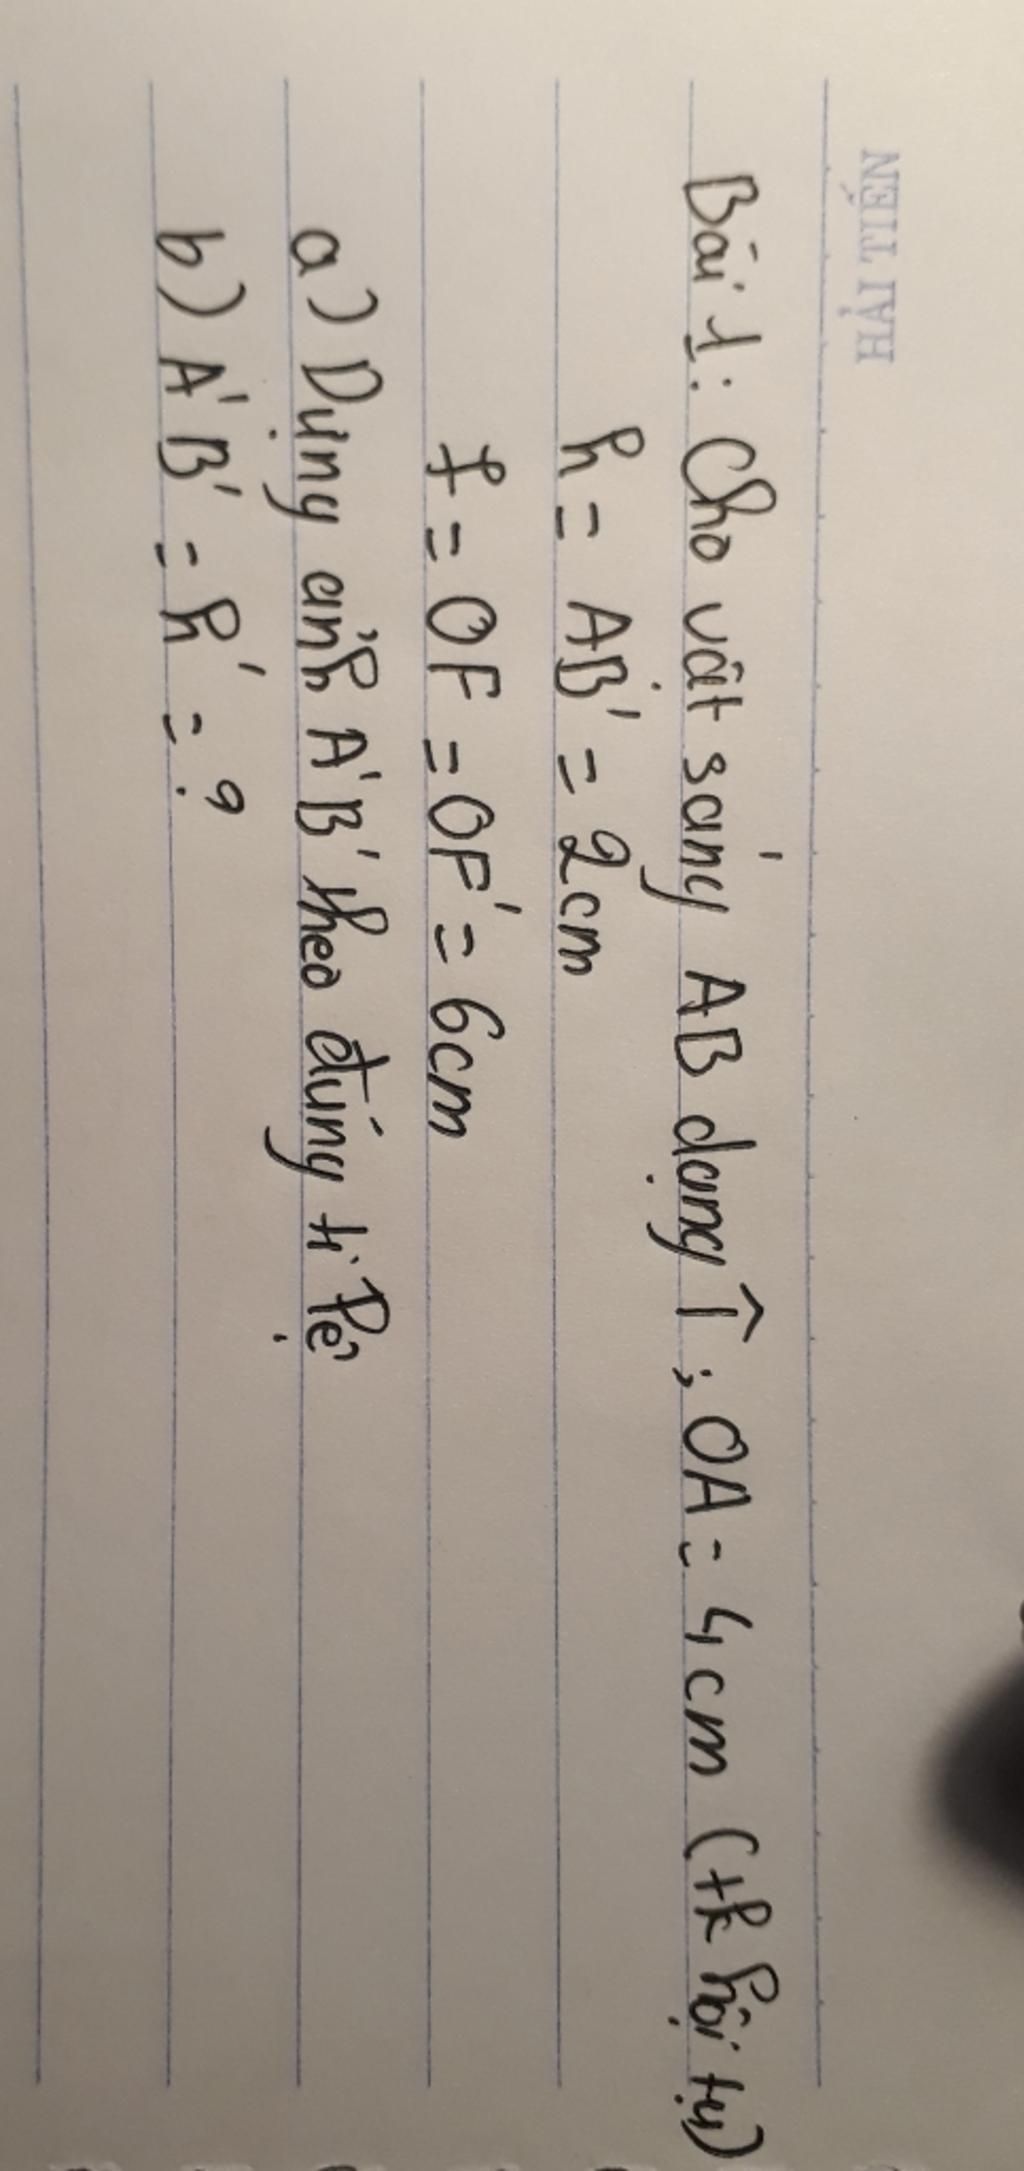 HẢI TIẾN
Bài 1: Cho vật sáng AB dạng ↑; OA = 4cm (tk hội tụ)
h = AB' = 2cm
f = OF = OF' = 6cm
a) Dựng ảnh A'B' theo đúng tỉ lệ
b) A'B' = h' = ?